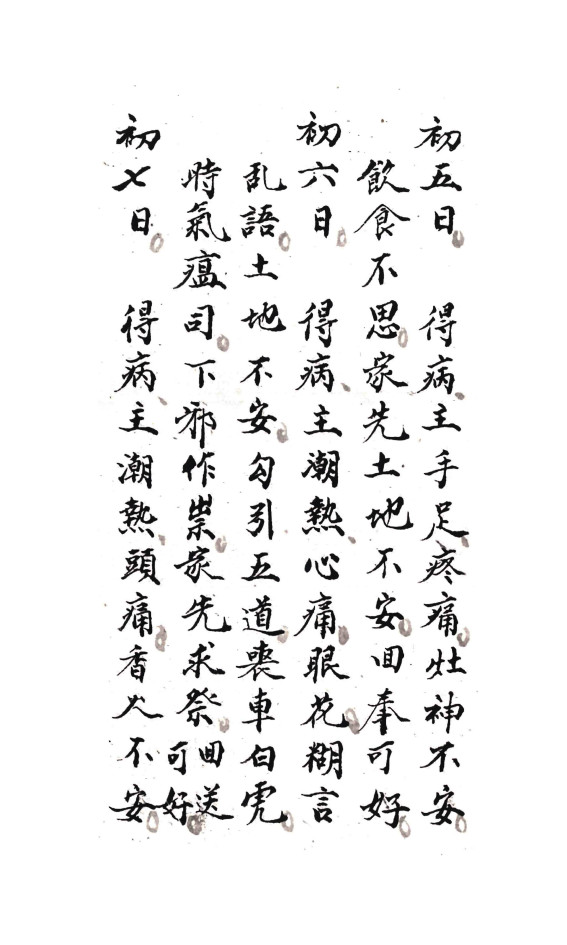 初五日　得病主手足疼痛灶神不安
飲食不思家先土地不安回奉可好
初六日　得病主潮熱心痛眼花糊言
乱語土地不安勾引五道喪車白虎
時氣瘟司下邪作祟家先求祭回送可好
初七日　得病主潮熱頭痛香火不安